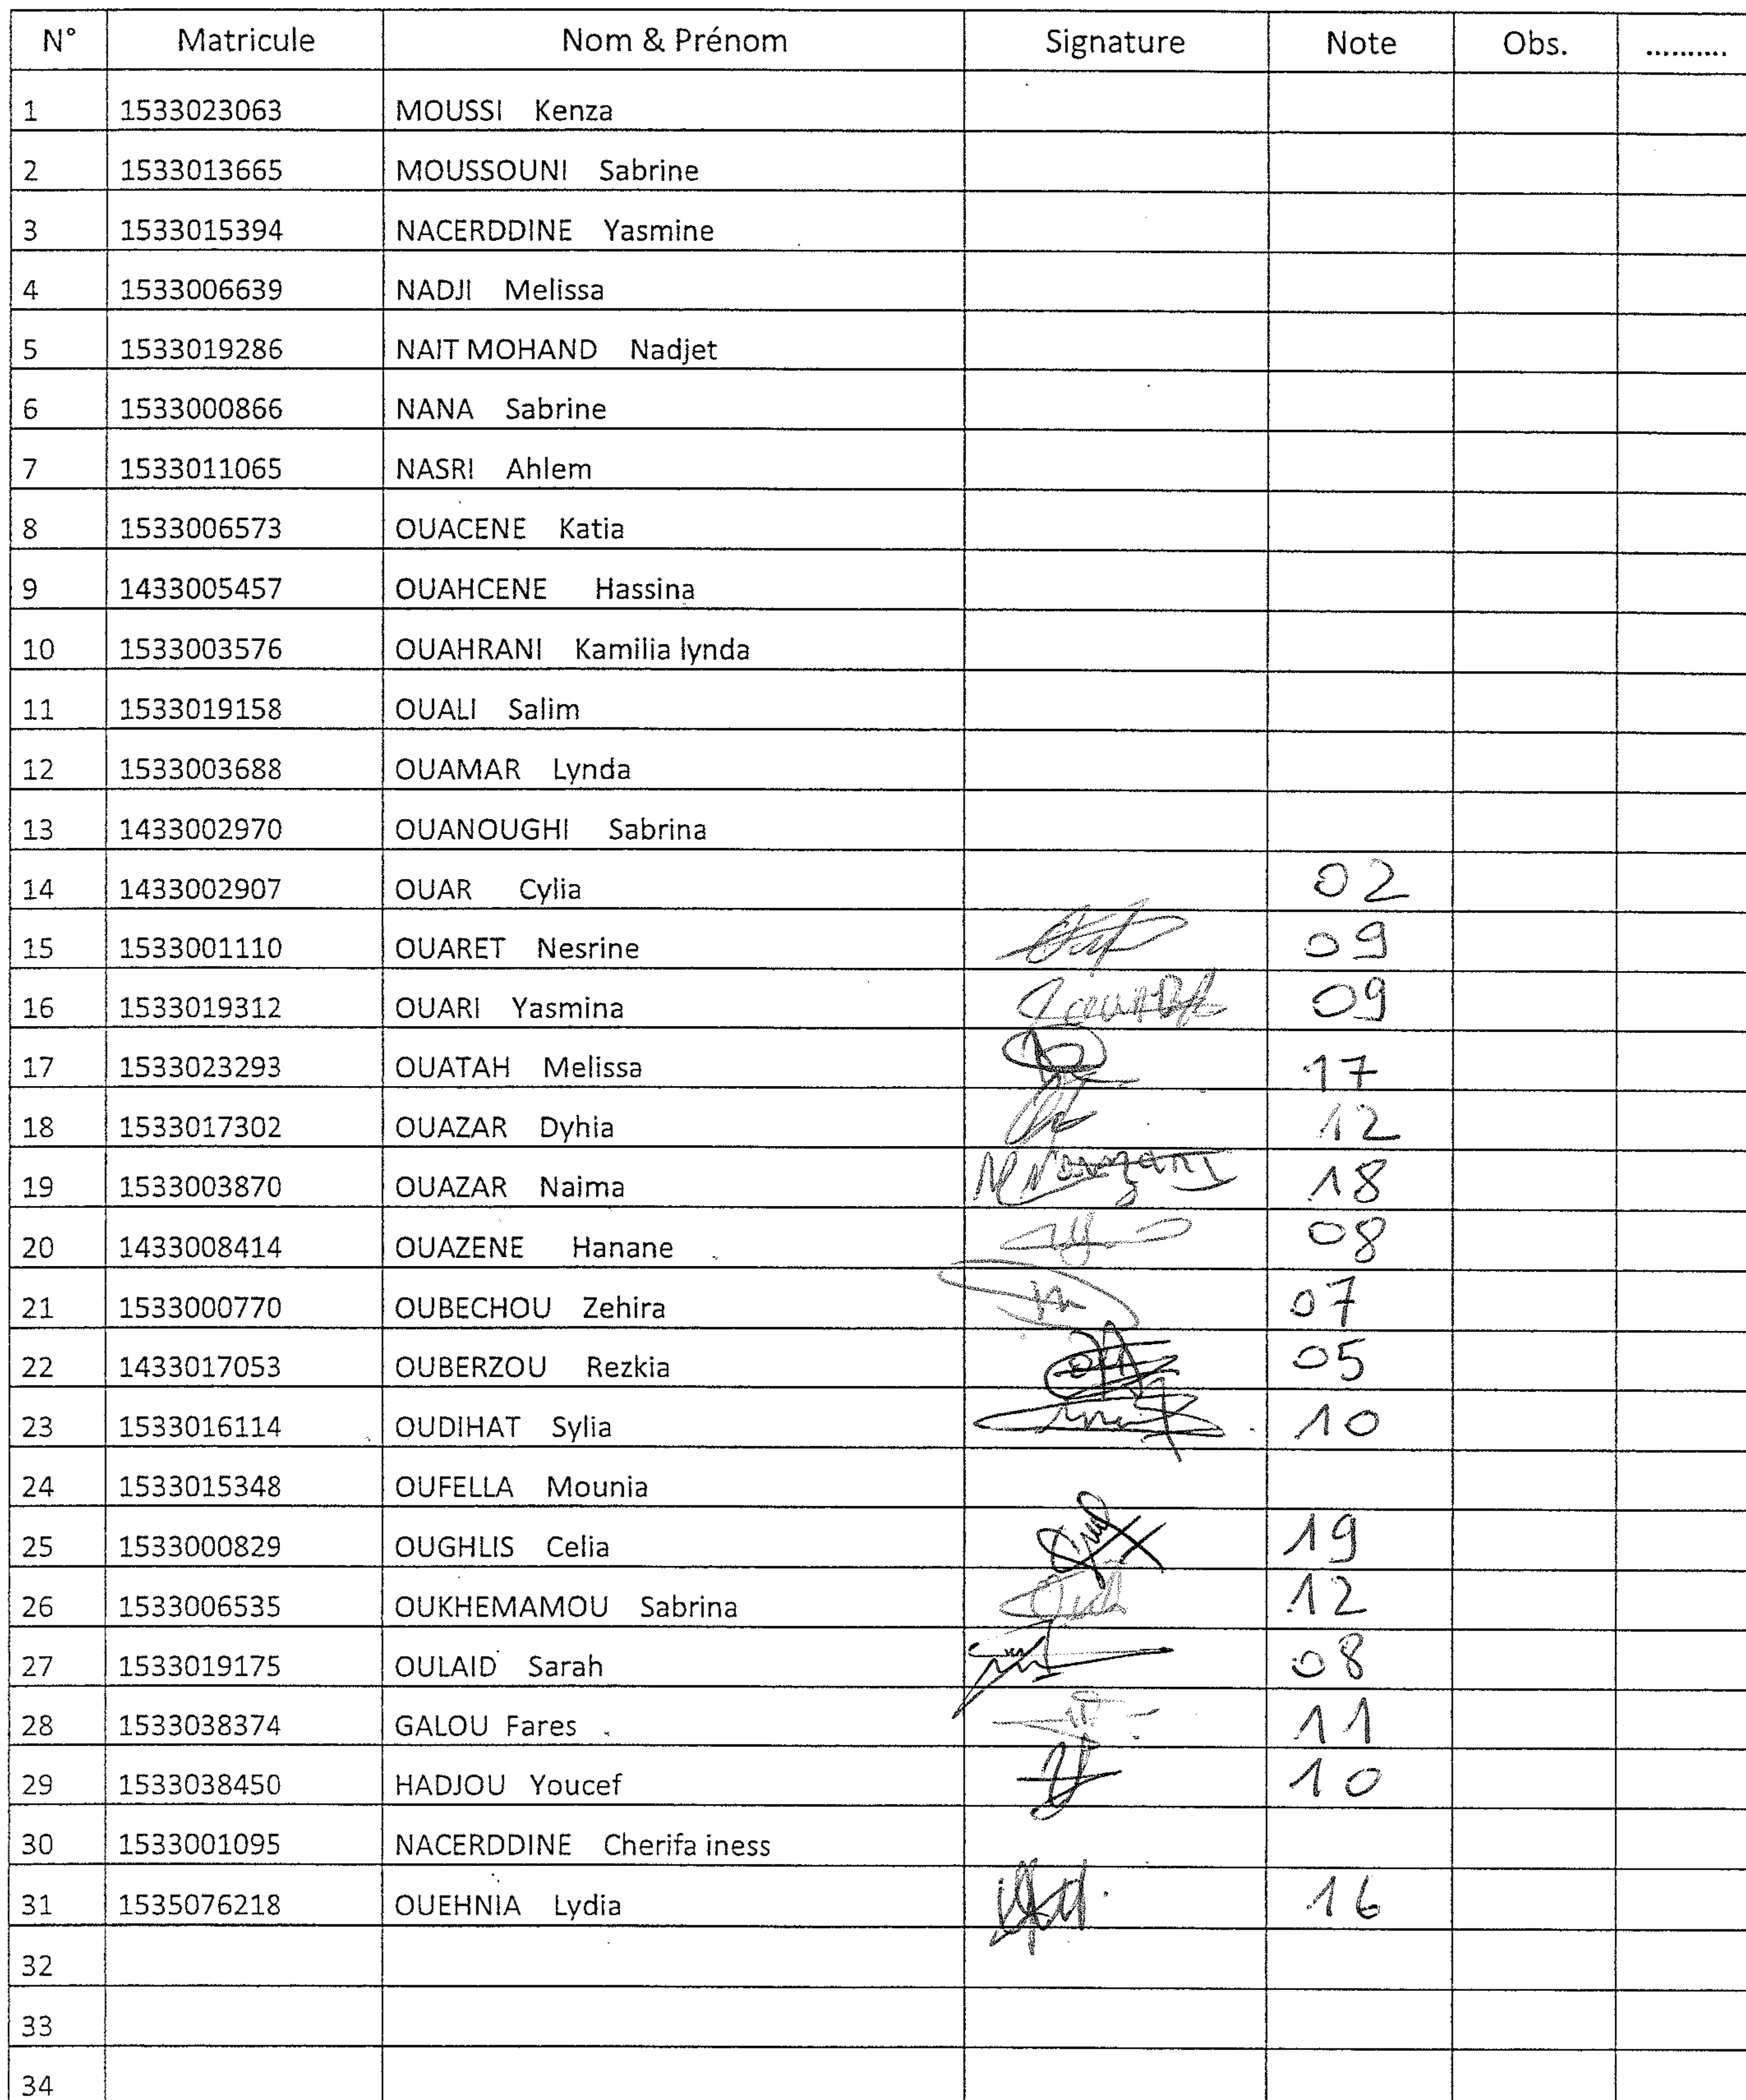 N° Matricule Nom & Prénom Signature Note Obs. ..........
1 1533023063 MOUSSI Kenza
2 1533013665 MOUSSOUNI Sabrine
3 1533015394 NACERDDINE Yasmine
4 1533006639 NADJI Melissa
5 1533019286 NAIT MOHAND Nadjet
6 1533000866 NANA Sabrine
7 1533011065 NASRI Ahlem
8 1533006573 OUACENE Katia
9 1433005457 OUAHCENE Hassina
10 1533003576 OUAHRANI Kamilia lynda
11 1533019158 OUALI Salim
12 1533003688 OUAMAR Lynda
13 1433002970 OUANOUGHI Sabrina
14 1433002907 OUAR Cylia 02
15 1533001110 OUARET Nesrine 09
16 1533019312 OUARI Yasmina 09
17 1533023293 OUATAH Melissa 17
18 1533017302 OUAZAR Dyhia 12
19 1533003870 OUAZAR Naima 18
20 1433008414 OUAZENE Hanane 08
21 1533000770 OUBECHOU Zehira 07
22 1433017053 OUBERZOU Rezkia 05
23 1533016114 OUDIHAT Sylia 10
24 1533015348 OUFELLA Mounia
25 1533000829 OUGHLIS Celia 19
26 1533006535 OUKHEMAMOU Sabrina 12
27 1533019175 OULAID Sarah 08
28 1533038374 GALOU Fares 11
29 1533038450 HADJOU Youcef 10
30 1533001095 NACERDDINE Cherifa iness
31 1535076218 OUEHNIA Lydia 16
32
33
34